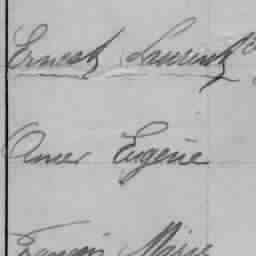 Ernest Laurent
Omer Eugène
François Marie